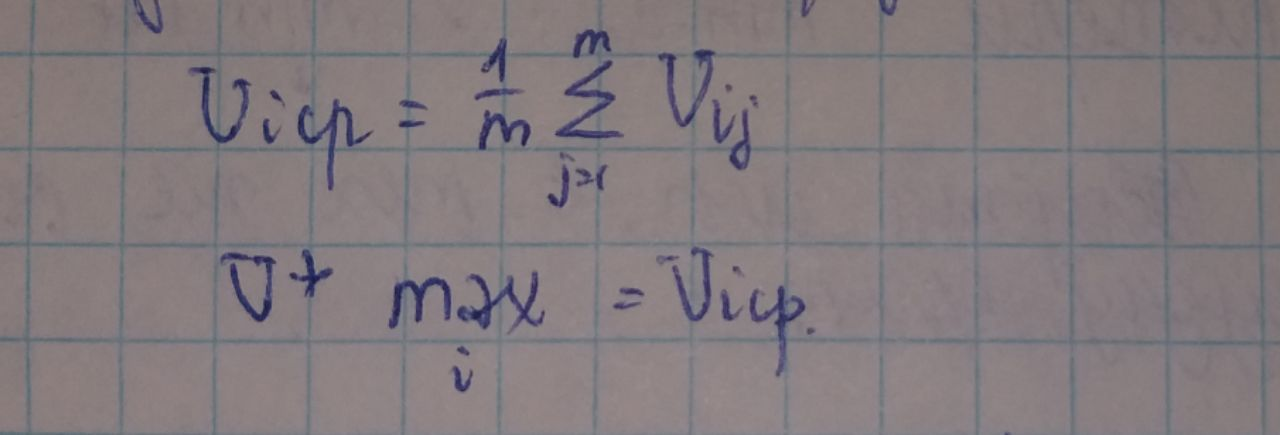 V_{iср} = \frac{1}{m} \sum_{j=1}^{m} V_{ij}
V^* \max_{i} = V_{iср.}